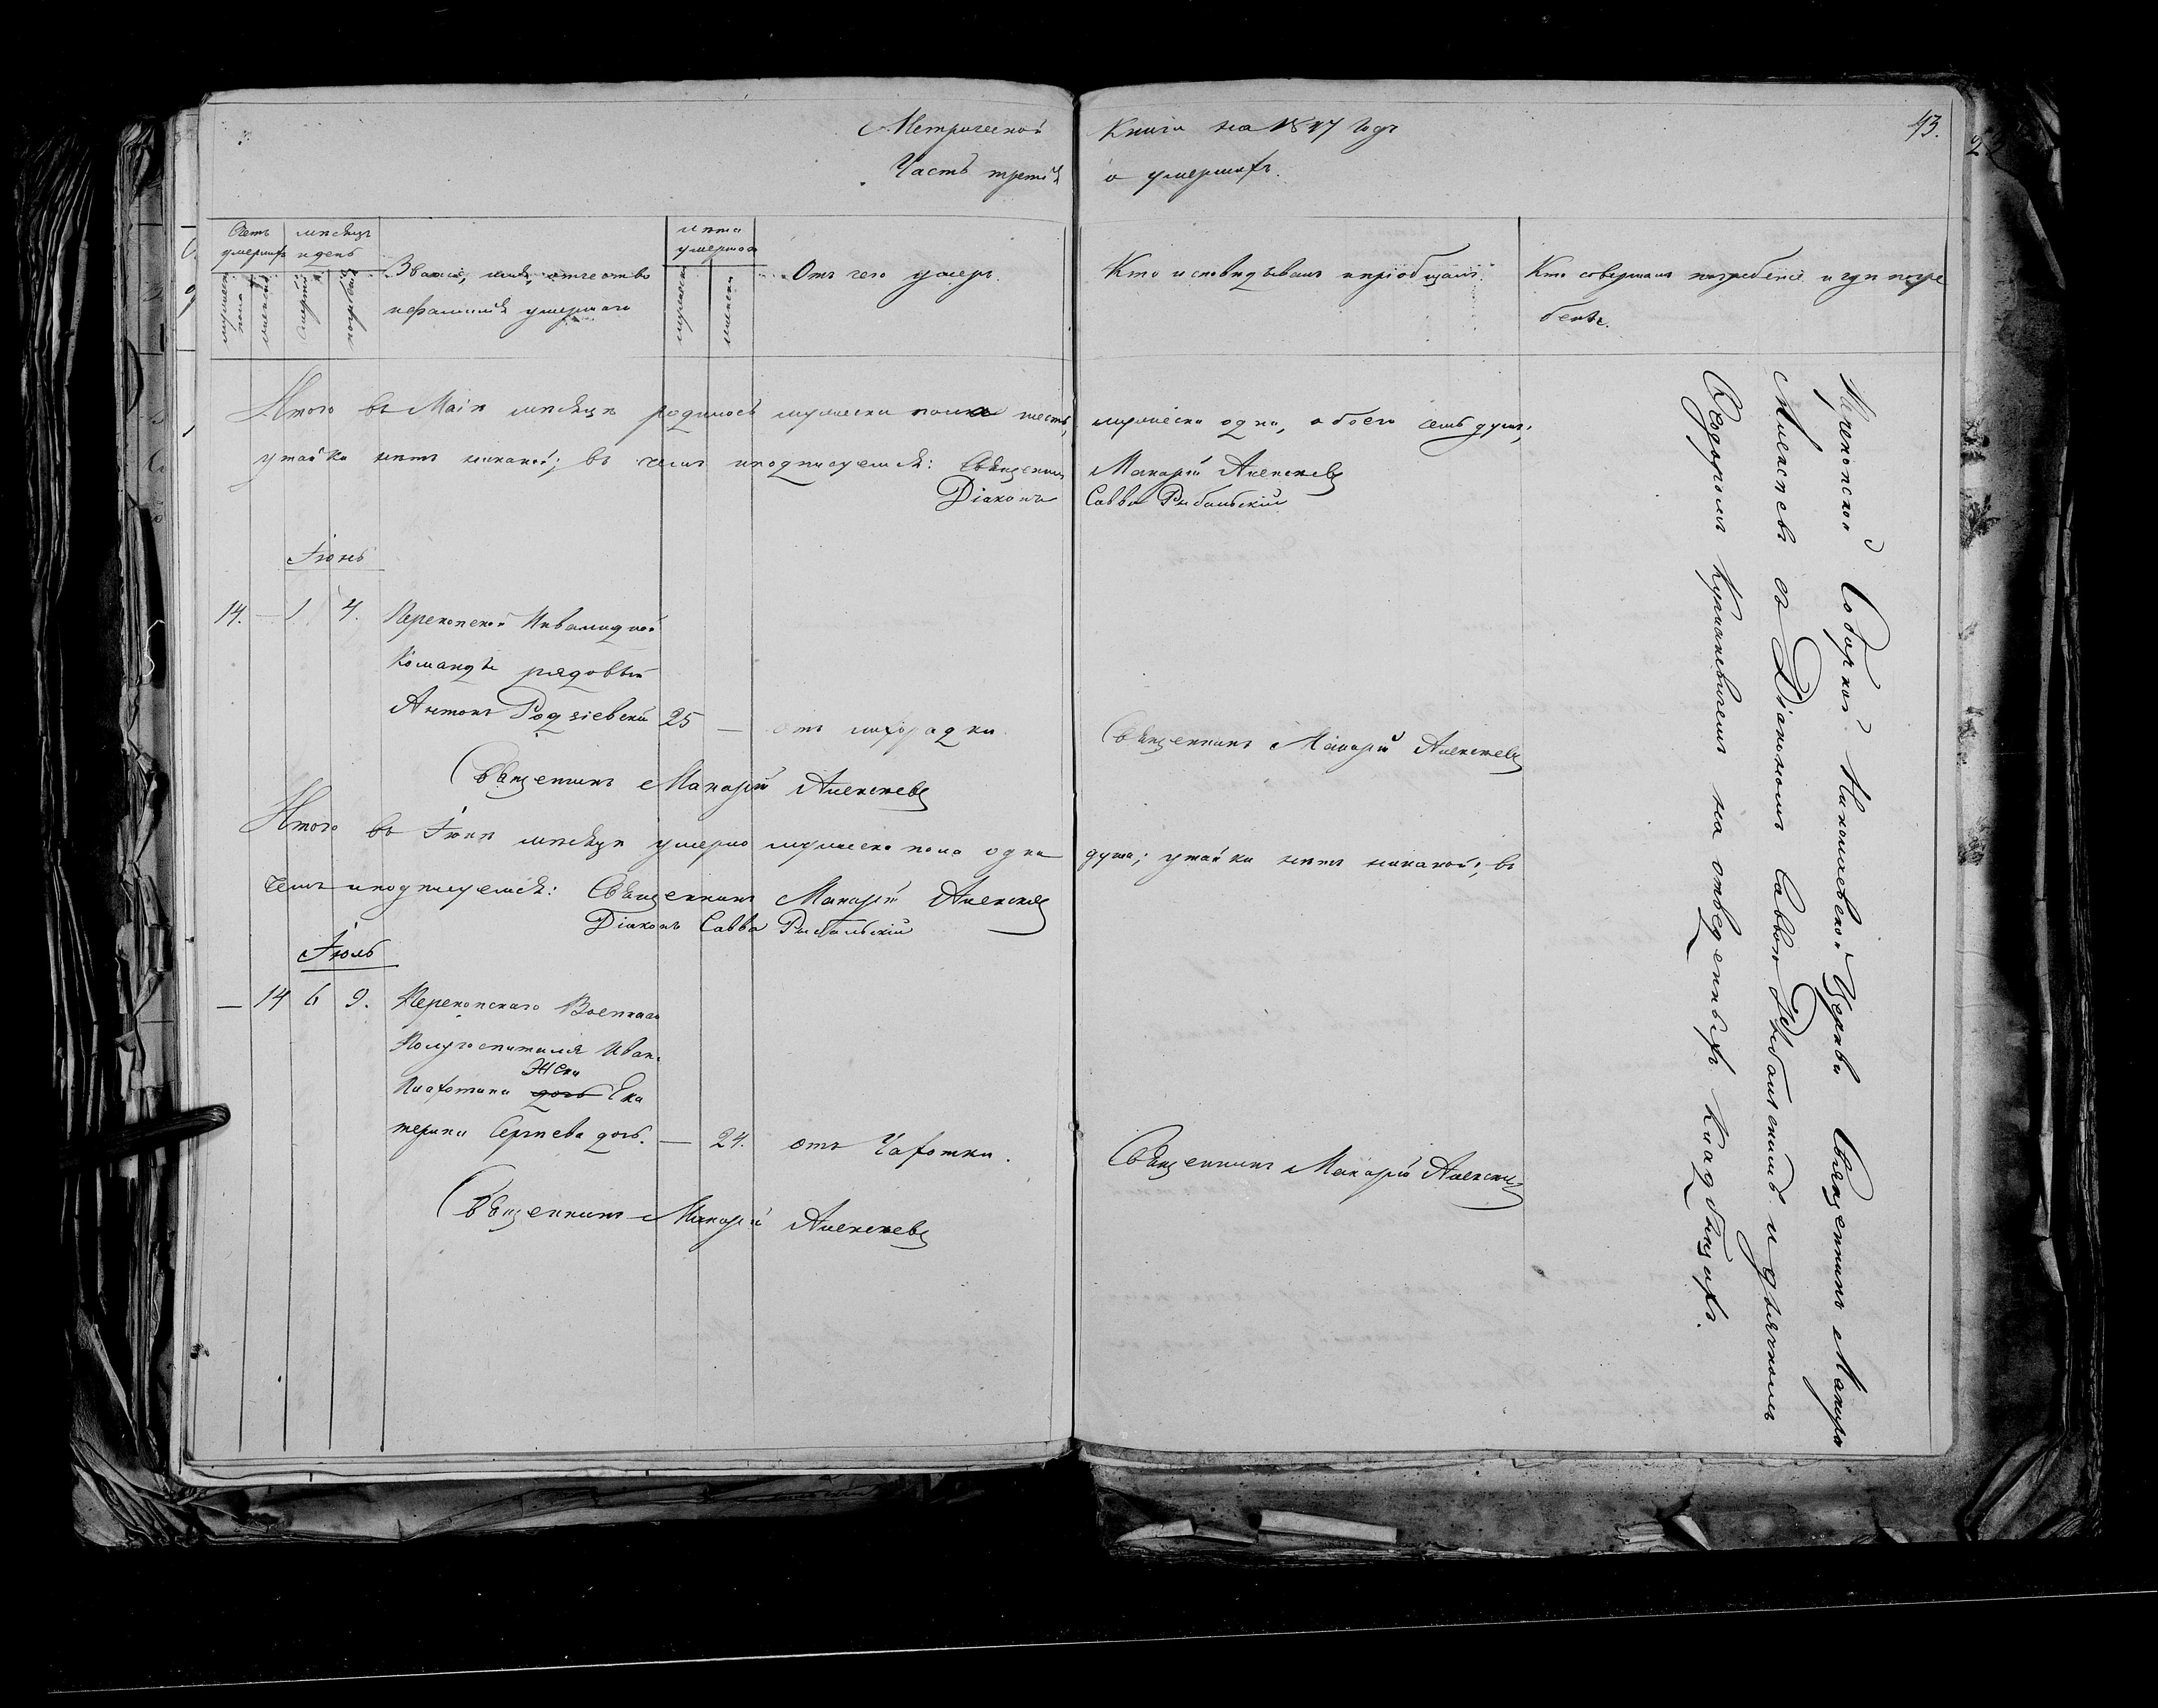 Метрической Книги на 1847 годъ
43.
22
Часть третія о умершихъ.
Счетъ умершихъ
мѣсяцъ и день
Званіе, имя, отчество
и фамилія умершаго
лѣта умершаго
Отъ чего умеръ.
Кто исповѣдывалъ и пріобщалъ.
Кто совершалъ погребеніе и гдѣ погре
бены.
мужеска пола
женска
смерти
погребенія
мужеска
женска
Итого въ Маіи мѣсяцѣ родилось мужеска пола шесть, женска одна, обоего семь душъ;
утайки нѣтъ никакой; въ чемъ и подписуемся: Священникъ Макарій Алексѣевъ
Діаконъ Савва Рыбальскій
Іюнь
14. — 1 4. Перекопской Инвалидной
Команды рядовый
Антонъ Родзіевскій 25 — отъ лихорадки. Священникъ Макарій Алексѣевъ
Священникъ Макарій Алексѣевъ
Итого въ Іюнѣ мѣсяцѣ умерло мужеска пола одна душа; утайки нѣтъ никакой; въ
чемъ и подписуемся: Священникъ Макарій Алексѣевъ
Діаконъ Савва Рыбальскій
Іюль
— 14 6 9. Перекопскаго Военнаго
Полугоспиталя Ивана
жена
дочь Ека
терина Сергѣева дочь. — 24. отъ Чахотки. Священникъ Макарій Алексѣевъ
Священникъ Макарій Алексѣевъ
Перекопской Соборной Николаевской Церкви Священникъ Макарій
Алексѣевъ съ Діакономъ Саввою Рыбальскимъ и дьячкомъ
Ѳеодоромъ на отведенныхъ Кладбищахъ.